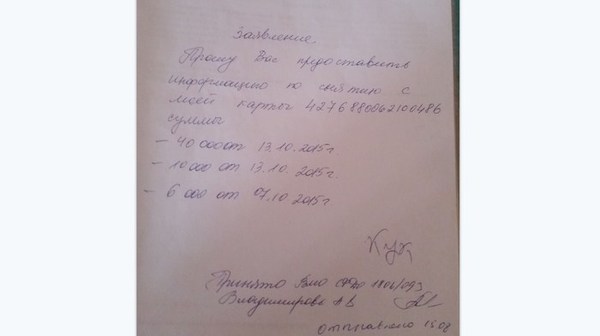 Заявление.
Прошу Вас предоставить
информацию по снятию с
моей карты 4276880042100486
суммы
– 40 000 от 13.10.2015г
– 10 000 от 13.10.2015г.
– 6 000 от 07.10 2015г
Принято 1806/093
Владимирова АВ
отправлено 15.08